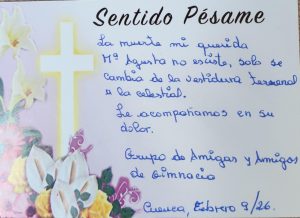 Sentido Pésame
La muerte mi querida
Mª Agusta no existe, solo se
cambia de la vestidura terrenal
a la celestial.
Le acompañamos en su
dolor.
Grupo de Amigas y Amigos
de Gimnacia
Cuenca, Febrero 9/26.